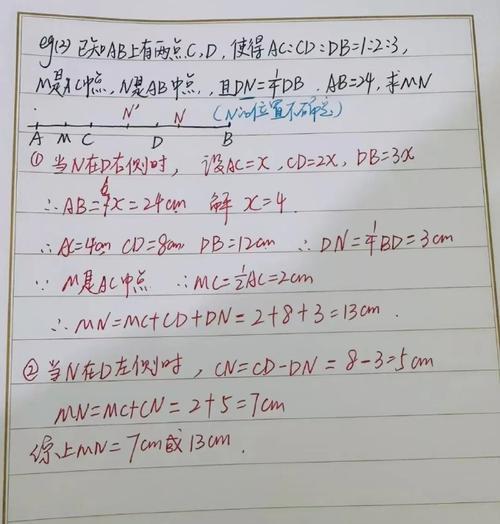 eg(2) 已知AB上有两点C,D, 使得AC:CD:DB=1:2:3,
M是AC中点, N是AB中点, 且DN=1/4DB. AB=24, 求MN
N' N (N的位置不确定)
A M C D B
① 当N在D右侧时, 设AC=x, CD=2x, DB=3x
∴AB=6x=24cm 解 x=4.
∴AC=4cm CD=8cm DB=12cm ∴DN=1/4BD=3cm
∵ M是AC中点 ∴MC=1/2AC=2cm
∴MN=MC+CD+DN=2+8+3=13cm.
② 当N在D左侧时, CN=CD-DN=8-3=5cm
MN=MC+CN=2+5=7cm
综上MN=7cm或13cm.